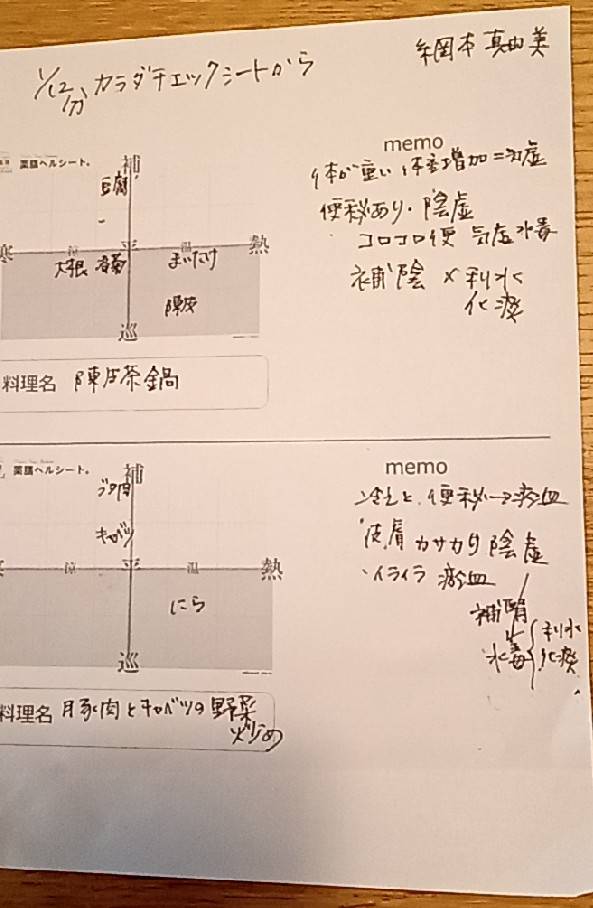 網本 真由美
1/12分 カラダチェックシートから
薬膳ヘルシート。
補
豆腐
寒 涼 平 温 熱
大根 春菊 まいたけ
陳皮
巡
料理名 陳皮茶鍋
memo
体が重い 体重増加=気虚
便秘あり・陰虚
・コロコロ便 気虚水毒
補陰 × 利水
化痰
薬膳ヘルシート。
補
ブタ肉
キャベツ
涼 平 温 熱
にら
巡
料理名 豚肉とキャベツの野菜
炒め
memo
・冷えと、便秘→瘀血
皮膚 カサカサ 陰虚
・イライラ 瘀血
補腎
水毒 利水
化痰